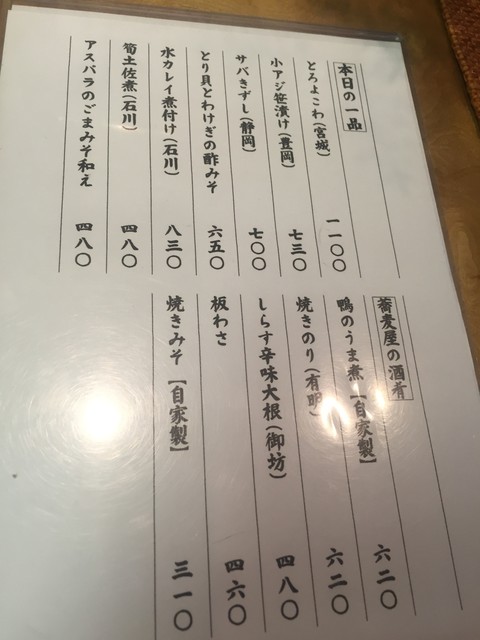 本日の一品
とろよこわ(宮城) 一一〇〇
小アジ笹漬け(豊岡) 七三〇
サバきずし(静岡) 七〇〇
とり貝とわけぎの酢みそ 六五〇
水カレイ煮付け(石川) 八三〇
筍土佐煮(石川) 四八〇
アスパラのごまみそ和え 四八〇
蕎麦屋の酒肴
鴨のうま煮【自家製】 六二〇
焼きのり(有明) 六二〇
しらす辛味大根(御坊) 四八〇
板わさ 四六〇
焼きみそ【自家製】 三一〇